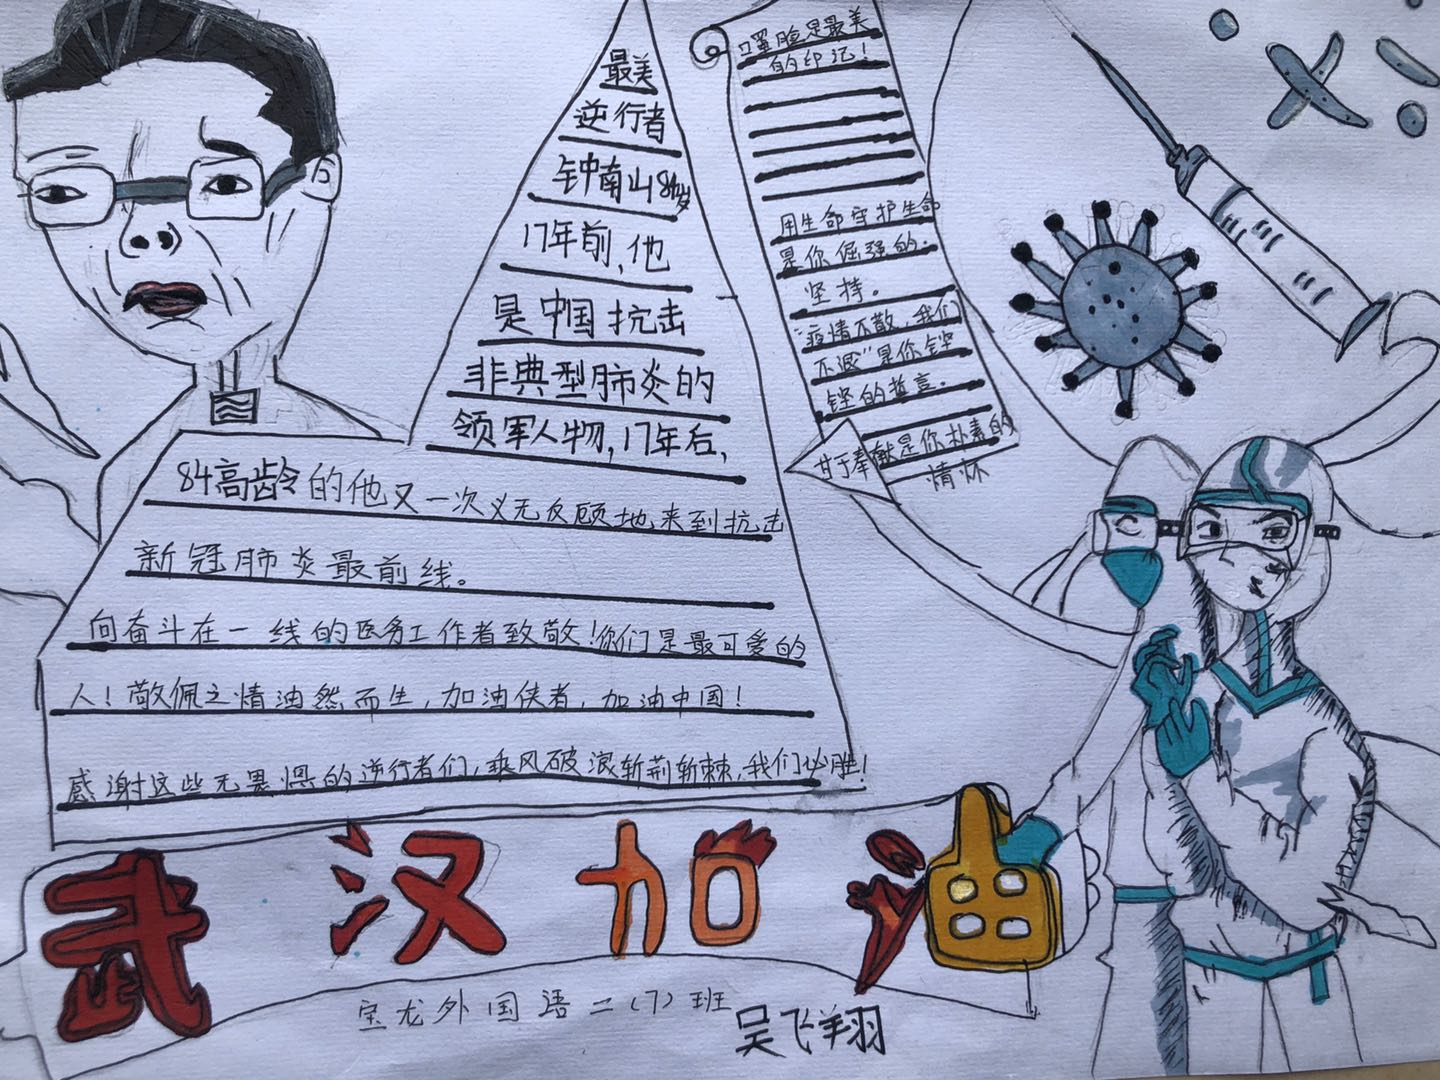 最美
逆行者
钟南山84岁
17年前,他
是中国抗击
非典型肺炎的
领军人物,17年后,
84高龄的他又一次义无反顾地来到抗击
新冠肺炎最前线。
向奋斗在一线的医务工作者致敬!你们是最可爱的
人!敬佩之情油然而生,加油侠者,加油中国!
感谢这些无畏惧的逆行者们,乘风破浪斩荆斩棘,我们必胜!
口罩脸是最美
的印记!
用生命守护生命
是你倔强的
坚持。
“疫情不散,我们
不退”是你铿
铿的誓言。
甘于奉献是你朴素的
情怀
武汉加油
宝龙外国语二(7)班
吴飞翔